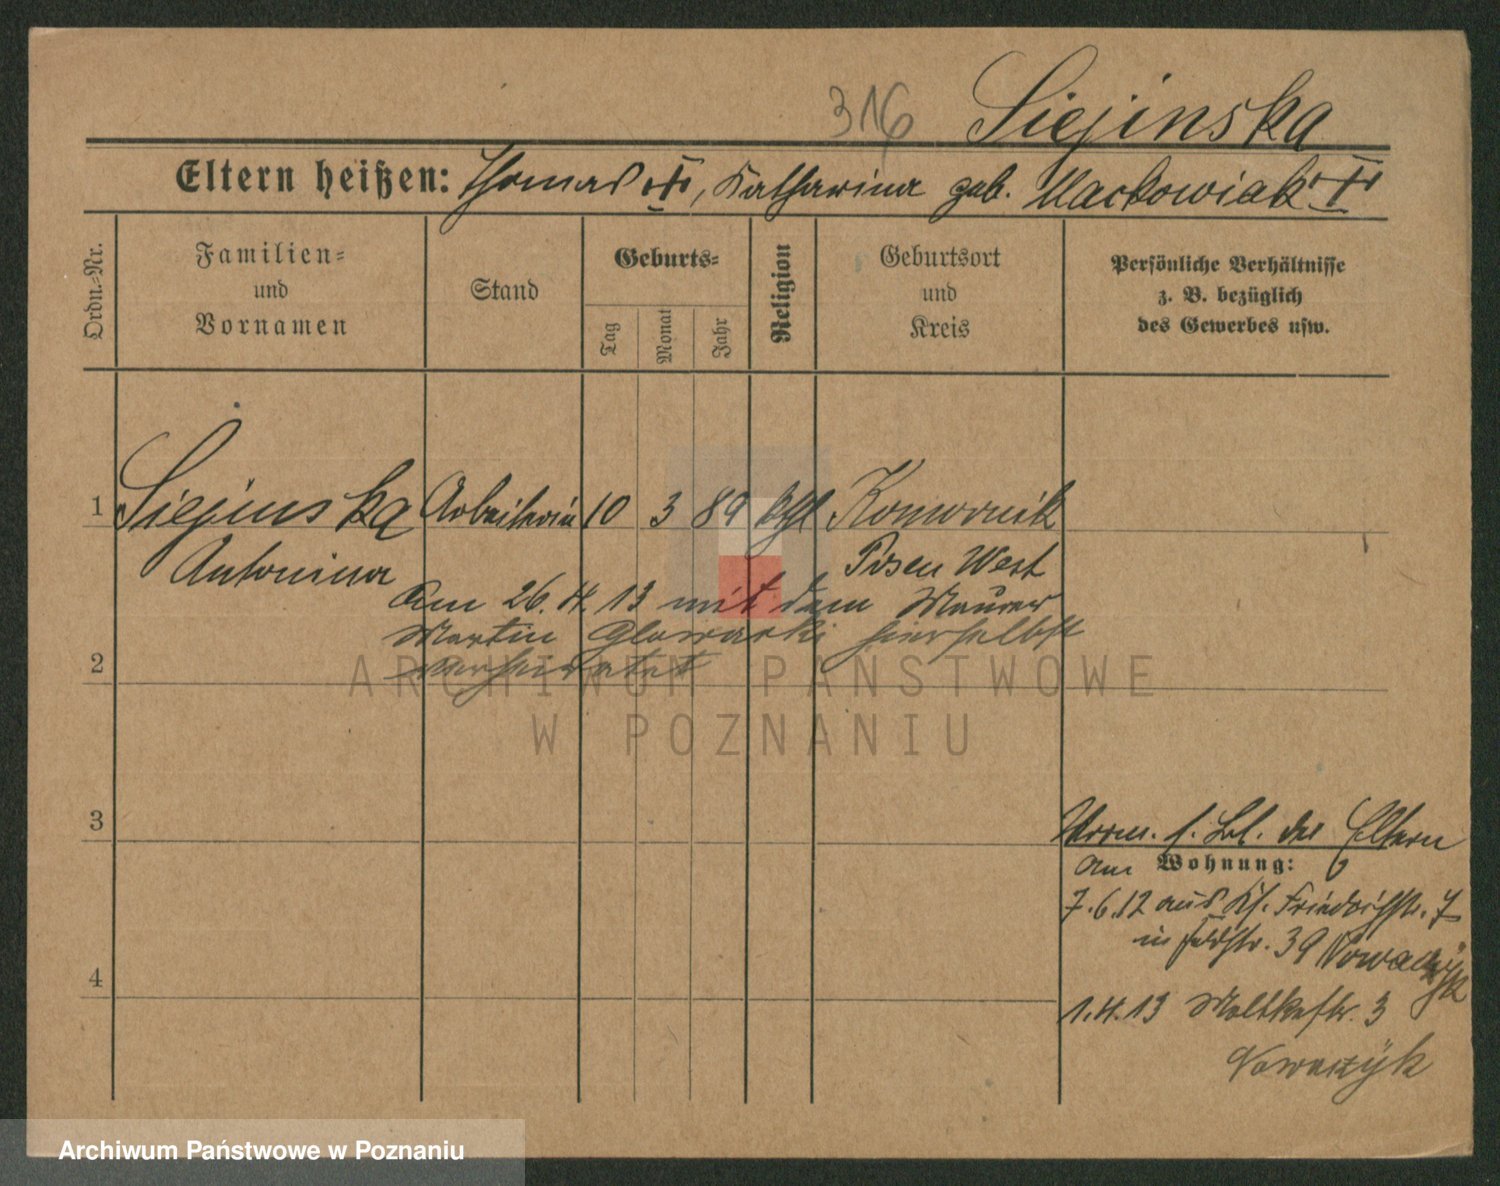 316 Siejinska
Eltern heißen: Thomas †, Katharina geb. Mackowiak †
Ordn.-Nr.
Familien-
und
Vornamen
Stand
Geburts-
Tag
Monat
Jahr
Religion
Geburtsort
und
Kreis
Persönliche Verhältnisse
z. B. bezüglich
des Gewerbes usw.
1 Siejinska Arbeiterin 10 3 89 kthl Komornik
Antonina Posen West
Am 26. 4. 13 mit dem Maurer
Martin Glowacki hierselbst
verheiratet
2
ARCHIWUM PAŃSTWOWE
W POZNANIU
3
Vorm. s. Bl. der Eltern
am Wohnung:
7.6.12 aus Kl. Friedrichstr. 7
in Feldstr. 39 Nowaczyk
4
1.4.13 Moltkestr. 3
Nowaczyk
Archiwum Państwowe w Poznaniu